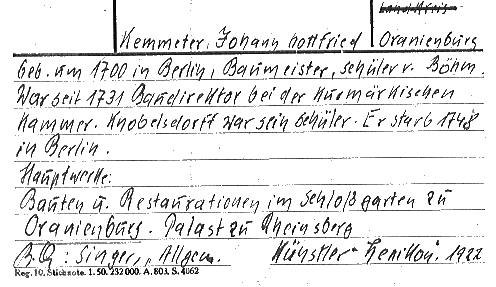 Landkreis
Kemmeter, Johann Gottfried Oranienburg
geb. um 1700 in Berlin, Baumeister, Schüler v. Böhm.
War seit 1731 Baudirektor bei der Kurmärkischen
Kammer. Knobelsdorff war sein Schüler. Er starb 1748
in Berlin.
Hauptwerke:
Bauten u. Restaurationen im Schloßgarten zu
Oranienburg. Palast zu Rheinsberg
B.Q: Singer, "Allgem. Künstler-Lexikon". 1922
Reg. 10. Sticknote. 1. 50. 232 000. A. 803. S. 4062